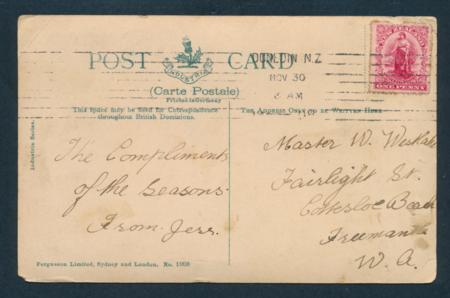 POST CARD
INDUSTRIA
(Carte Postale)
Printed in Germany
This Space may be used for Correspondence
throughout British Dominions.
The Address Only to be Written Here
DUNEDIN N.Z
NOV 30
8 AM
NEW ZEALAND
ONE PENNY
Industria Series.
The Compliments
of the Seasons.
From Jess.
Master W.
Fairlight St.
Cottesloe Beach
Freemantle
W. A.
Fergusson Limited, Sydney and London. No. 1908